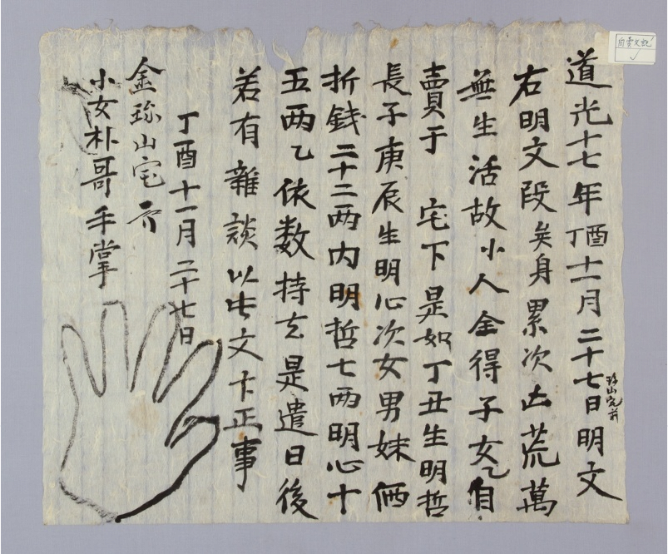 自賣文記
道光十七年丁酉十一月二十七日明文
珍山宅前
右明文段矣身累次凶荒萬
無生活故小人金得子女乙自
賣于 宅下是如丁丑生明哲
長子庚辰生明心次女男妹価
折錢二十二两内明哲七两明心十
五两乙依数持去是遣日後
若有雜談以此文卞正事
丁酉十一月二十七日
金珍山宅
小女朴哥手掌